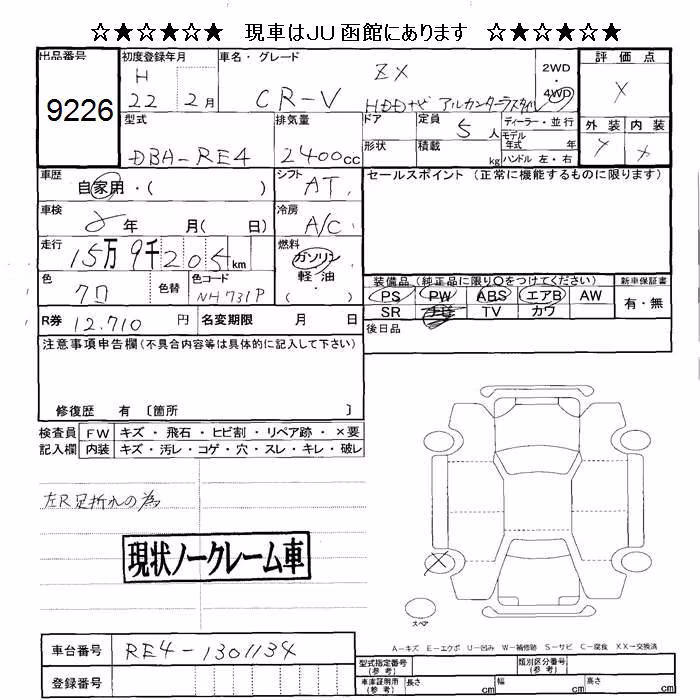 ☆★☆★☆★ 現車はJU函館にあります ☆★☆★☆★
出品番号 初度登録年月 車名・グレード 評価点
9226 H 22 2月 CR-V ZX 2WD・4WD X
HDDナビ アルカンターラスタイル
型式 排気量 ドア 定員 5人 ディーラー・並行 外装 内装
DBA-RE4 2400cc 形状 積載 kg モデル年式 年 ハンドル 左・右 Y X
車歴 自家用・( ) シフト AT セールスポイント (正常に機能するものに限ります)
車検 2年 月( 日) 冷房 A/C
走行 15万9千205km 燃料 ガソリン・軽油・( )
色 クロ 色替 色コード NH731P 装備品 (純正品に限り○をつけてください) 新車保証書
PS PW ABS エアB AW 有・無
SR ナビ TV カワ
R券 12,710 円 名変期限 月 日 後日品
注意事項申告欄(不具合内容等は具体的に記入して下さい)
修復歴 有 〔箇所 〕
検査員 FW キズ・飛石・ヒビ割・リペア跡・×要
記入欄 内装 キズ・汚レ・コゲ・穴・スレ・キレ・破レ
左R足折れの為
現状ノークレーム車
スペア
A-キズ E-エクボ U-凹み W-補修跡 S-サビ C-腐食 XX-交換済
車台番号 RE4-1301134 型式指定番号(参考) 類別区分番号(参考)
登録番号 車庫証明用(参考) 長さ cm 幅 cm 高さ cm